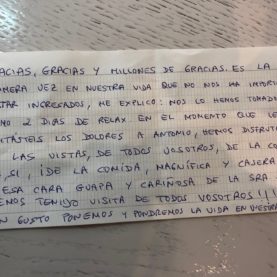 ACIAS, GRACIAS Y MILLONES DE GRACIAS. ES LA
MERA VEZ EN NUESTRA VIDA QUE NO NOS HA IMPOR
TAR INGRESADOS, ME EXPLICO: NOS LO HEMOS TOMADO
MO 2 DIAS DE RELAX. EN EL MOMENTO QUE LE
ITÁSTEIS LOS DOLORES A ANTONIO, HEMOS DISFRUT
LAS VISTAS, DE TODOS VOSOTROS, DE LA CO
,SI, ¡DE LA COMIDA, MAGNÍFICA Y CASERA
ESA CARA GUAPA Y CARIÑOSA DE LA SRA
EMOS TENIDO VISITA DE TODOS VOSOTROS!!
N GUSTO PONEMOS Y PONDREMOS LA VIDA EN VUESTRA